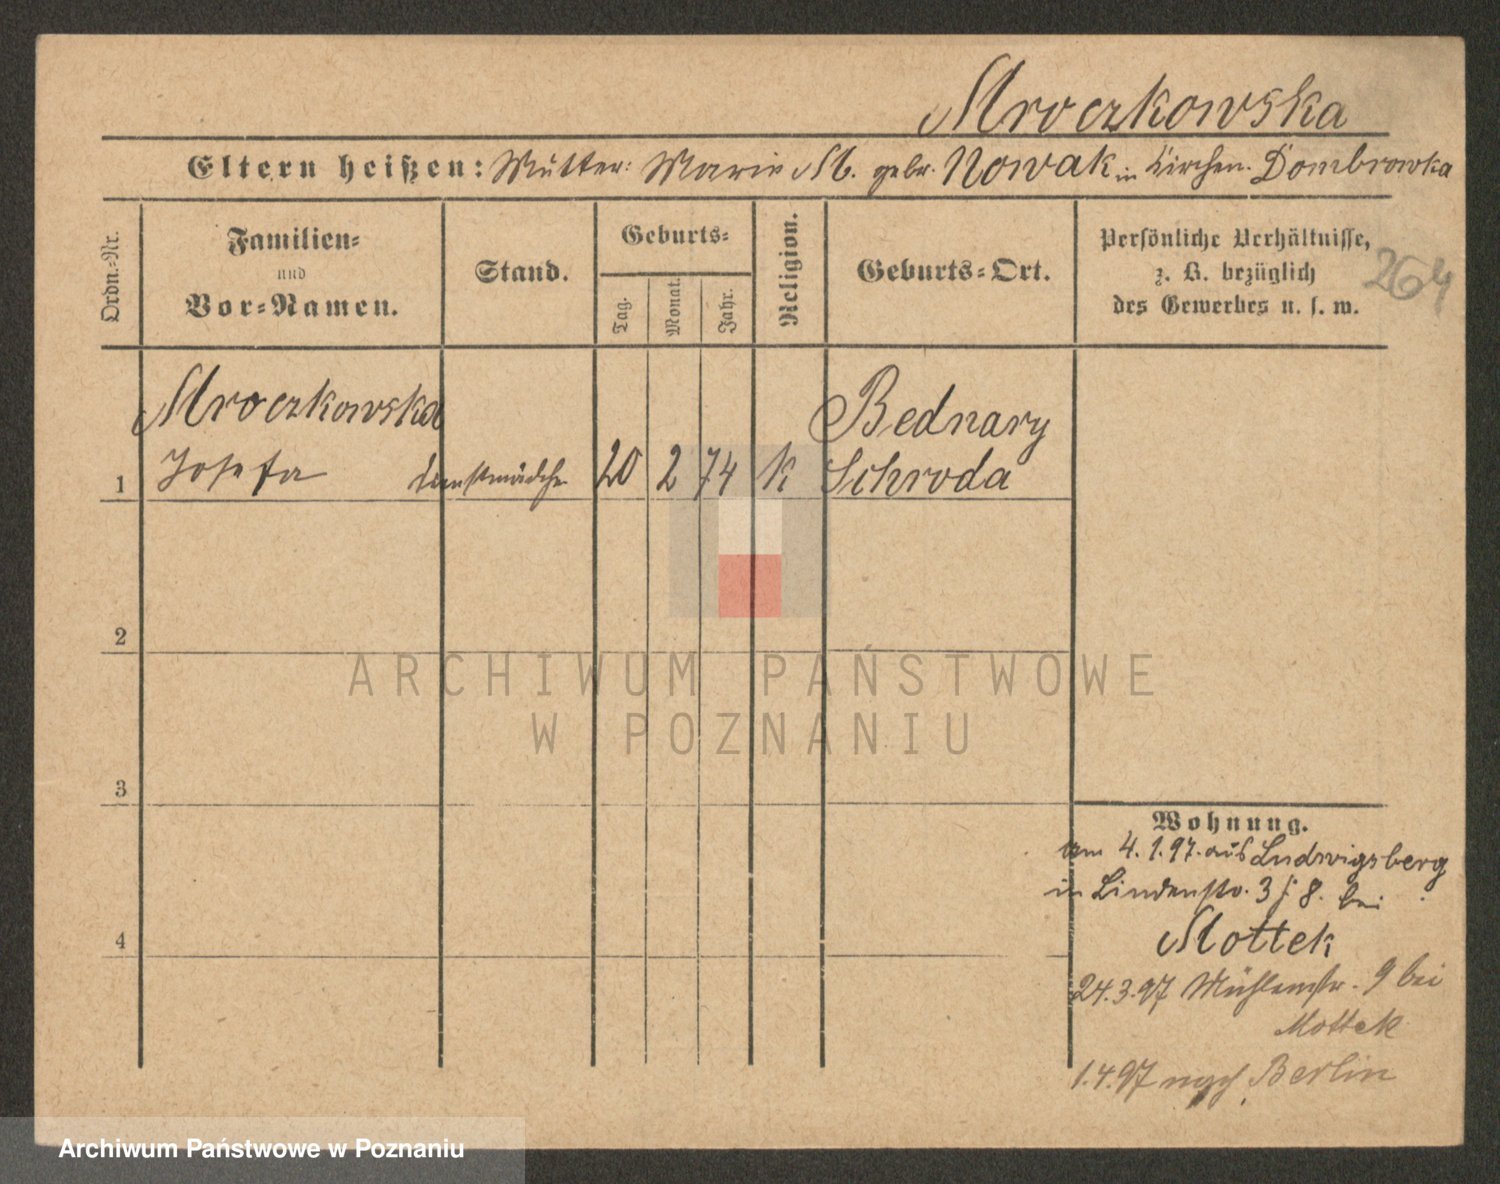 Mroczkowska
Eltern heißen: Mutter: Marie M. gebr. Nowak in Kirchen. Dombrowka
Ordn.-Nr.
Familien-
und
Vor-Namen.
Stand.
Geburts-
Tag.
Monat.
Jahr.
Religion.
Geburts-Ort.
Persönliche Verhältnisse,
z. B. bezüglich
des Gewerbes u. s. w.
264
Mroczkowska
Bednary
1 Josefa Dienstmädchen 20 2 74 k Schroda
2
ARCHIWUM PAŃSTWOWE
W POZNANIU
3
Wohnung.
am 4.1.97. aus Ludwigsberg
in Lindenstr. 3 / 8. bei
Mottek
4
24.3.97 Mühlenstr. 9 bei
Mottek
1.4.97 nach Berlin
Archiwum Państwowe w Poznaniu